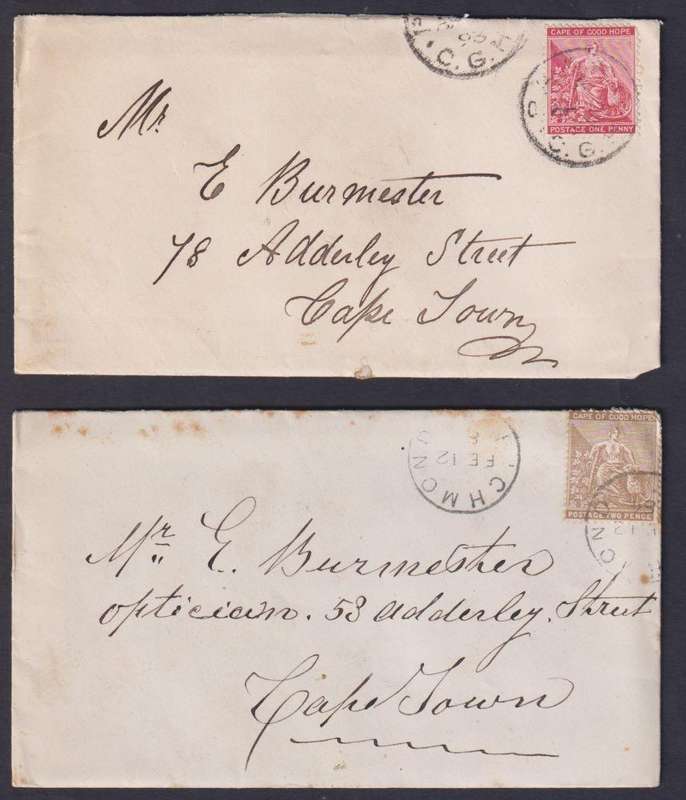 C.G.
CAPE OF GOOD HOPE
POSTAGE ONE PENNY
C.G.
Mr
E Burmester
78 Adderley Street
Cape Town
CHMON
FE 12
8
CAPE OF GOOD HOPE
POSTAGE TWO PENCE
Mr. E. Burmester
Optician. 53 Adderley. Street
Cape Town